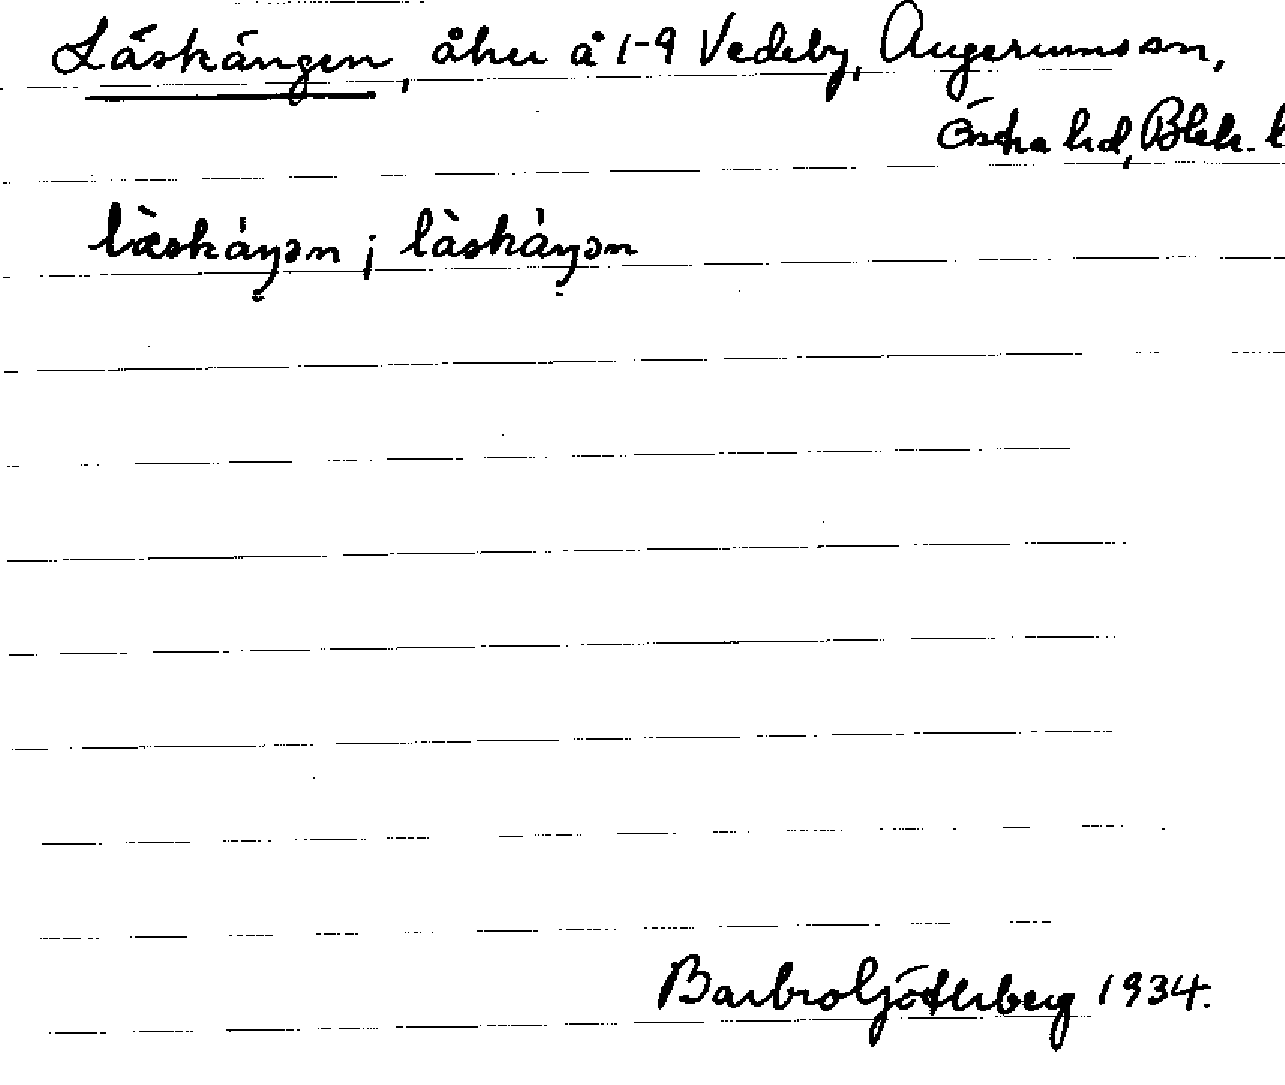 Läskängen, åker å 1-9 Vedeby, Augerums sn,
Östra hd, Blek. l
læ̀skáŋən ; làskáŋən
Barbro 1934.